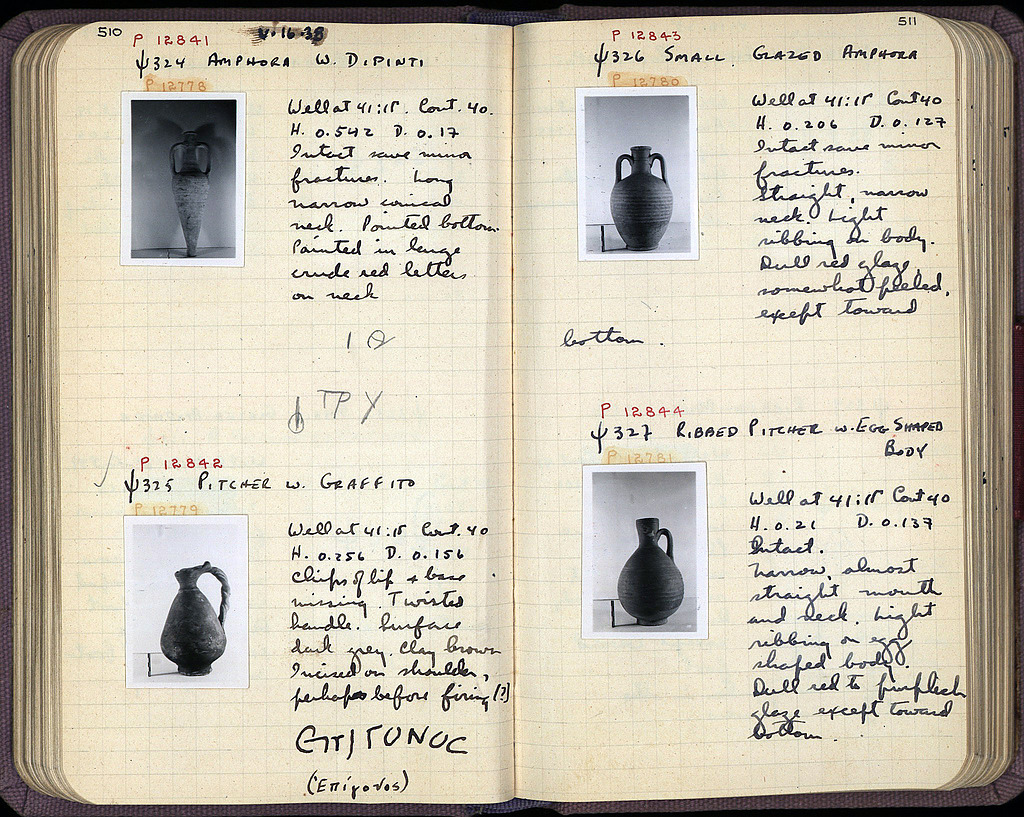 510
V-16-38
P 12841
ψ324 AMPHORA W. DIPINTI
P 12778
Well at 41:15 Cont. 40.
H. 0.542 D. 0.17
Intact save minor
fractures. Long
narrow conical
neck. Pointed bottom.
Painted in large
crude red letters
on neck
ΤΡΥ
P 12842
ψ325 PITCHER W. GRAFFITO
P 12779
Well at 41:15 Cont. 40
H. 0.256 D. 0.156
Chips of lip + base
missing Twisted
handle. Surface
dark grey. Clay brown
Incised on shoulder,
perhaps before firing (?)
ЄΠΙΓΟΝΟC
(Ἐπίγονος)
511
P 12843
ψ326 SMALL GLAZED AMPHORA
P 12780
Well at 41:15 Cont 40
H. 0.206 D. 0.127
Intact save minor
fractures.
Straight, narrow
neck. Light
ribbing on body.
Dull red glaze,
somewhat peeled,
except toward
bottom.
P 12844
ψ327 RIBBED PITCHER W. EGG SHAPED
BODY
P 12781
Well at 41:15 Cont 40
H. 0.21 D. 0.137
Intact.
Narrow, almost
straight mouth
and neck. Light
ribbing on egg
shaped body.
Dull red to purplish
glaze except toward
bottom.